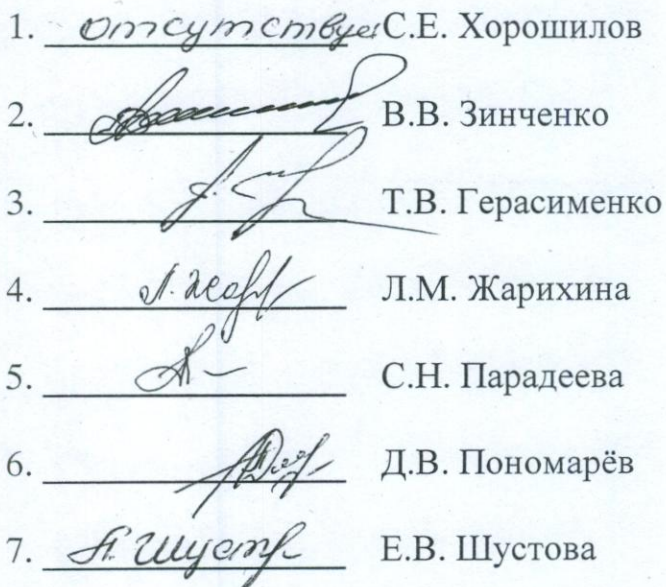 1. отсутствует С.Е. Хорошилов
2. В.В. Зинченко
3. Т.В. Герасименко
4. Л. Жар Л.М. Жарихина
5. С.Н. Парадеева
6. Д.В. Пономарёв
7. Шуст Е.В. Шустова